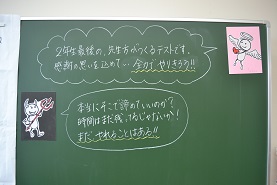 2年生最後の、先生方がつくるテストです。
感謝の思いを込めてい、全力でやりきろう!!
本当にそこで諦めていいのか?
時間はまだ残ってるじゃないか!
まだ、やれることはある!!